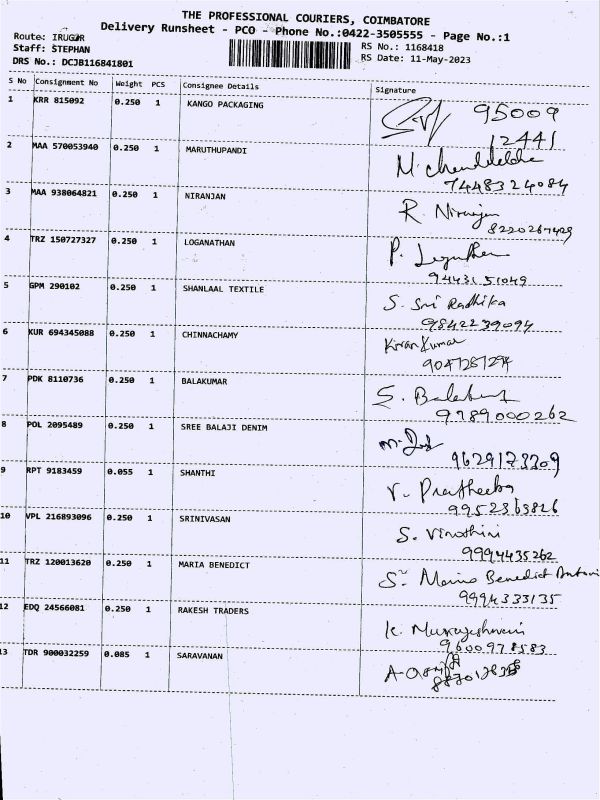 THE PROFESSIONAL COURIERS, COIMBATORE
Delivery Runsheet - PCO - Phone No.:0422-3505555 - Page No.:1
Route: IRUGUR
Staff: STEPHAN
DRS No.: DCJB116841801
RS No.: 1168418
RS Date: 11-May-2023
S No Consignment No Weight PCS Consignee Details Signature
1 KRR 815092 0.250 1 KANGO PACKAGING 95009
12441
2 MAA 570053940 0.250 1 MARUTHUPANDI
7448324084
3 MAA 938064821 0.250 1 NIRANJAN R. Niranjan
8220267429
4 TRZ 150727327 0.250 1 LOGANATHAN P.
9443151049
5 GPM 290102 0.250 1 SHANLAAL TEXTILE S. Sri Radhika
9842239094
6 KUR 694345088 0.250 1 CHINNACHAMY Kiran Kumar
9047287294
7 PDK 8110736 0.250 1 BALAKUMAR S.
9789000262
8 POL 2095489 0.250 1 SREE BALAJI DENIM
9629173209
9 RPT 9183459 0.055 1 SHANTHI V. Pratheeba
9952363826
10 VPL 216893096 0.250 1 SRINIVASAN S. Vinothini
9994435262
11 TRZ 120013620 0.250 1 MARIA BENEDICT S. Maria Benedict Antoni
9994333135
12 EDQ 24566081 0.250 1 RAKESH TRADERS K. Murugeshwari
9600978583
13 TDR 900032259 0.085 1 SARAVANAN